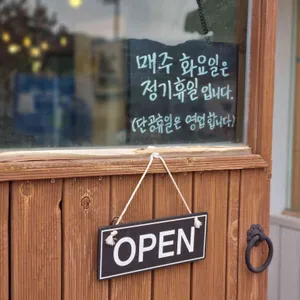 매주 화요일은
정기휴일 입니다.
(단공휴일은 영업합니다)
OPEN